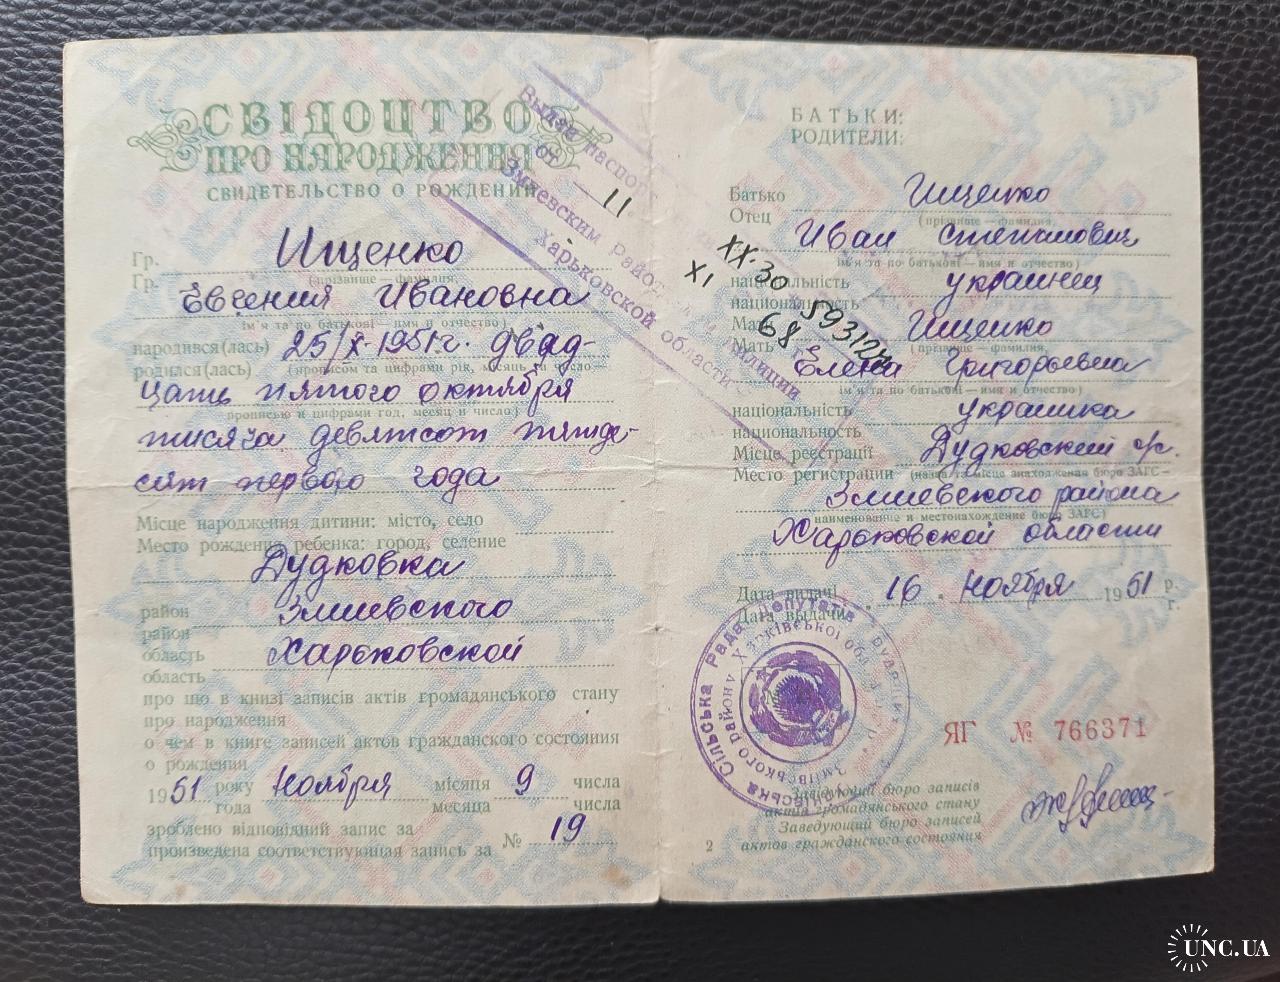 СВІДОЦТВО
ПРО НАРОДЖЕННЯ
СВИДЕТЕЛЬСТВО О РОЖДЕНИИ
Гр. Ищенко
Гр. (прізвище — фамилия)
Евгения Ивановна
ім'я та по батькові — имя и отчество)
народився(лась) 25/X-1951г. двад-
родился(лась) (прописом та цифрами рік, місяць та число —
цать пятого октября
прописью и цифрами год, месяц и число)
тисяча девятсот пятде-
сят первого года
Місце народження дитини: місто, село
Место рождения ребенка: город, селение
Дудковка
район Змиевского
район
область Харьковской
область
про що в книзі записів актів громадянського стану
про народження
о чем в книге записей актов гражданского состояния
о рождении
1951 року Ноября місяця 9 числа
года месяца числа
зроблено відповідний запис за
произведена соответствующая запись за № 19
Выдан паспорт
от 11
Змиевским район милиции
Харьковской области
XX-30 593124
XI 68
БАТЬКИ:
РОДИТЕЛИ:
Батько Ищенко
Отец (прізвище — фамилия,
Иван Степанович
ім'я та по батькові — имя и отчество)
національність украинец
национальность
Мати Ищенко
Мать (прізвище — фамилия,
Елена Григорьевна
ім'я та по батькові — имя и отчество)
національність украинка
национальность
Місце реєстрації Дудковский с/с.
Место регистрации (назва та місце знаходження бюро ЗАГС —
Змиевского района
наименование и местонахождение бюро ЗАГС)
Харьковской области
Дата видачі 16 Ноября 1951 р.
Дата выдачи г.
Сільська Рада Депутатів Трудящих
Зміївського району Харківської області
ЯГ № 766371
Завідуючий бюро записів
актів громадянського стану
Заведующий бюро записей
актов гражданского состояния
2
UNC.UA